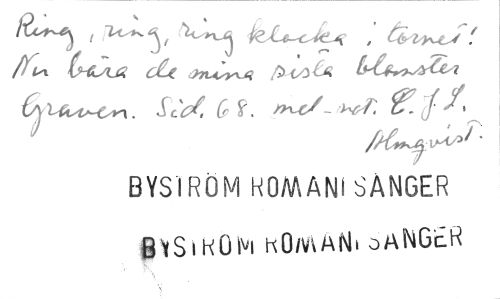 Ring, ring, ring klocka i tornet!
Nu bära de mina sista blomster
Graven. Sid. 68. mel-not. C. J. L.
Almqvist.
BYSTRÖM ROMANI SÅNGER
BYSTRÖM ROMANI SÅNGER